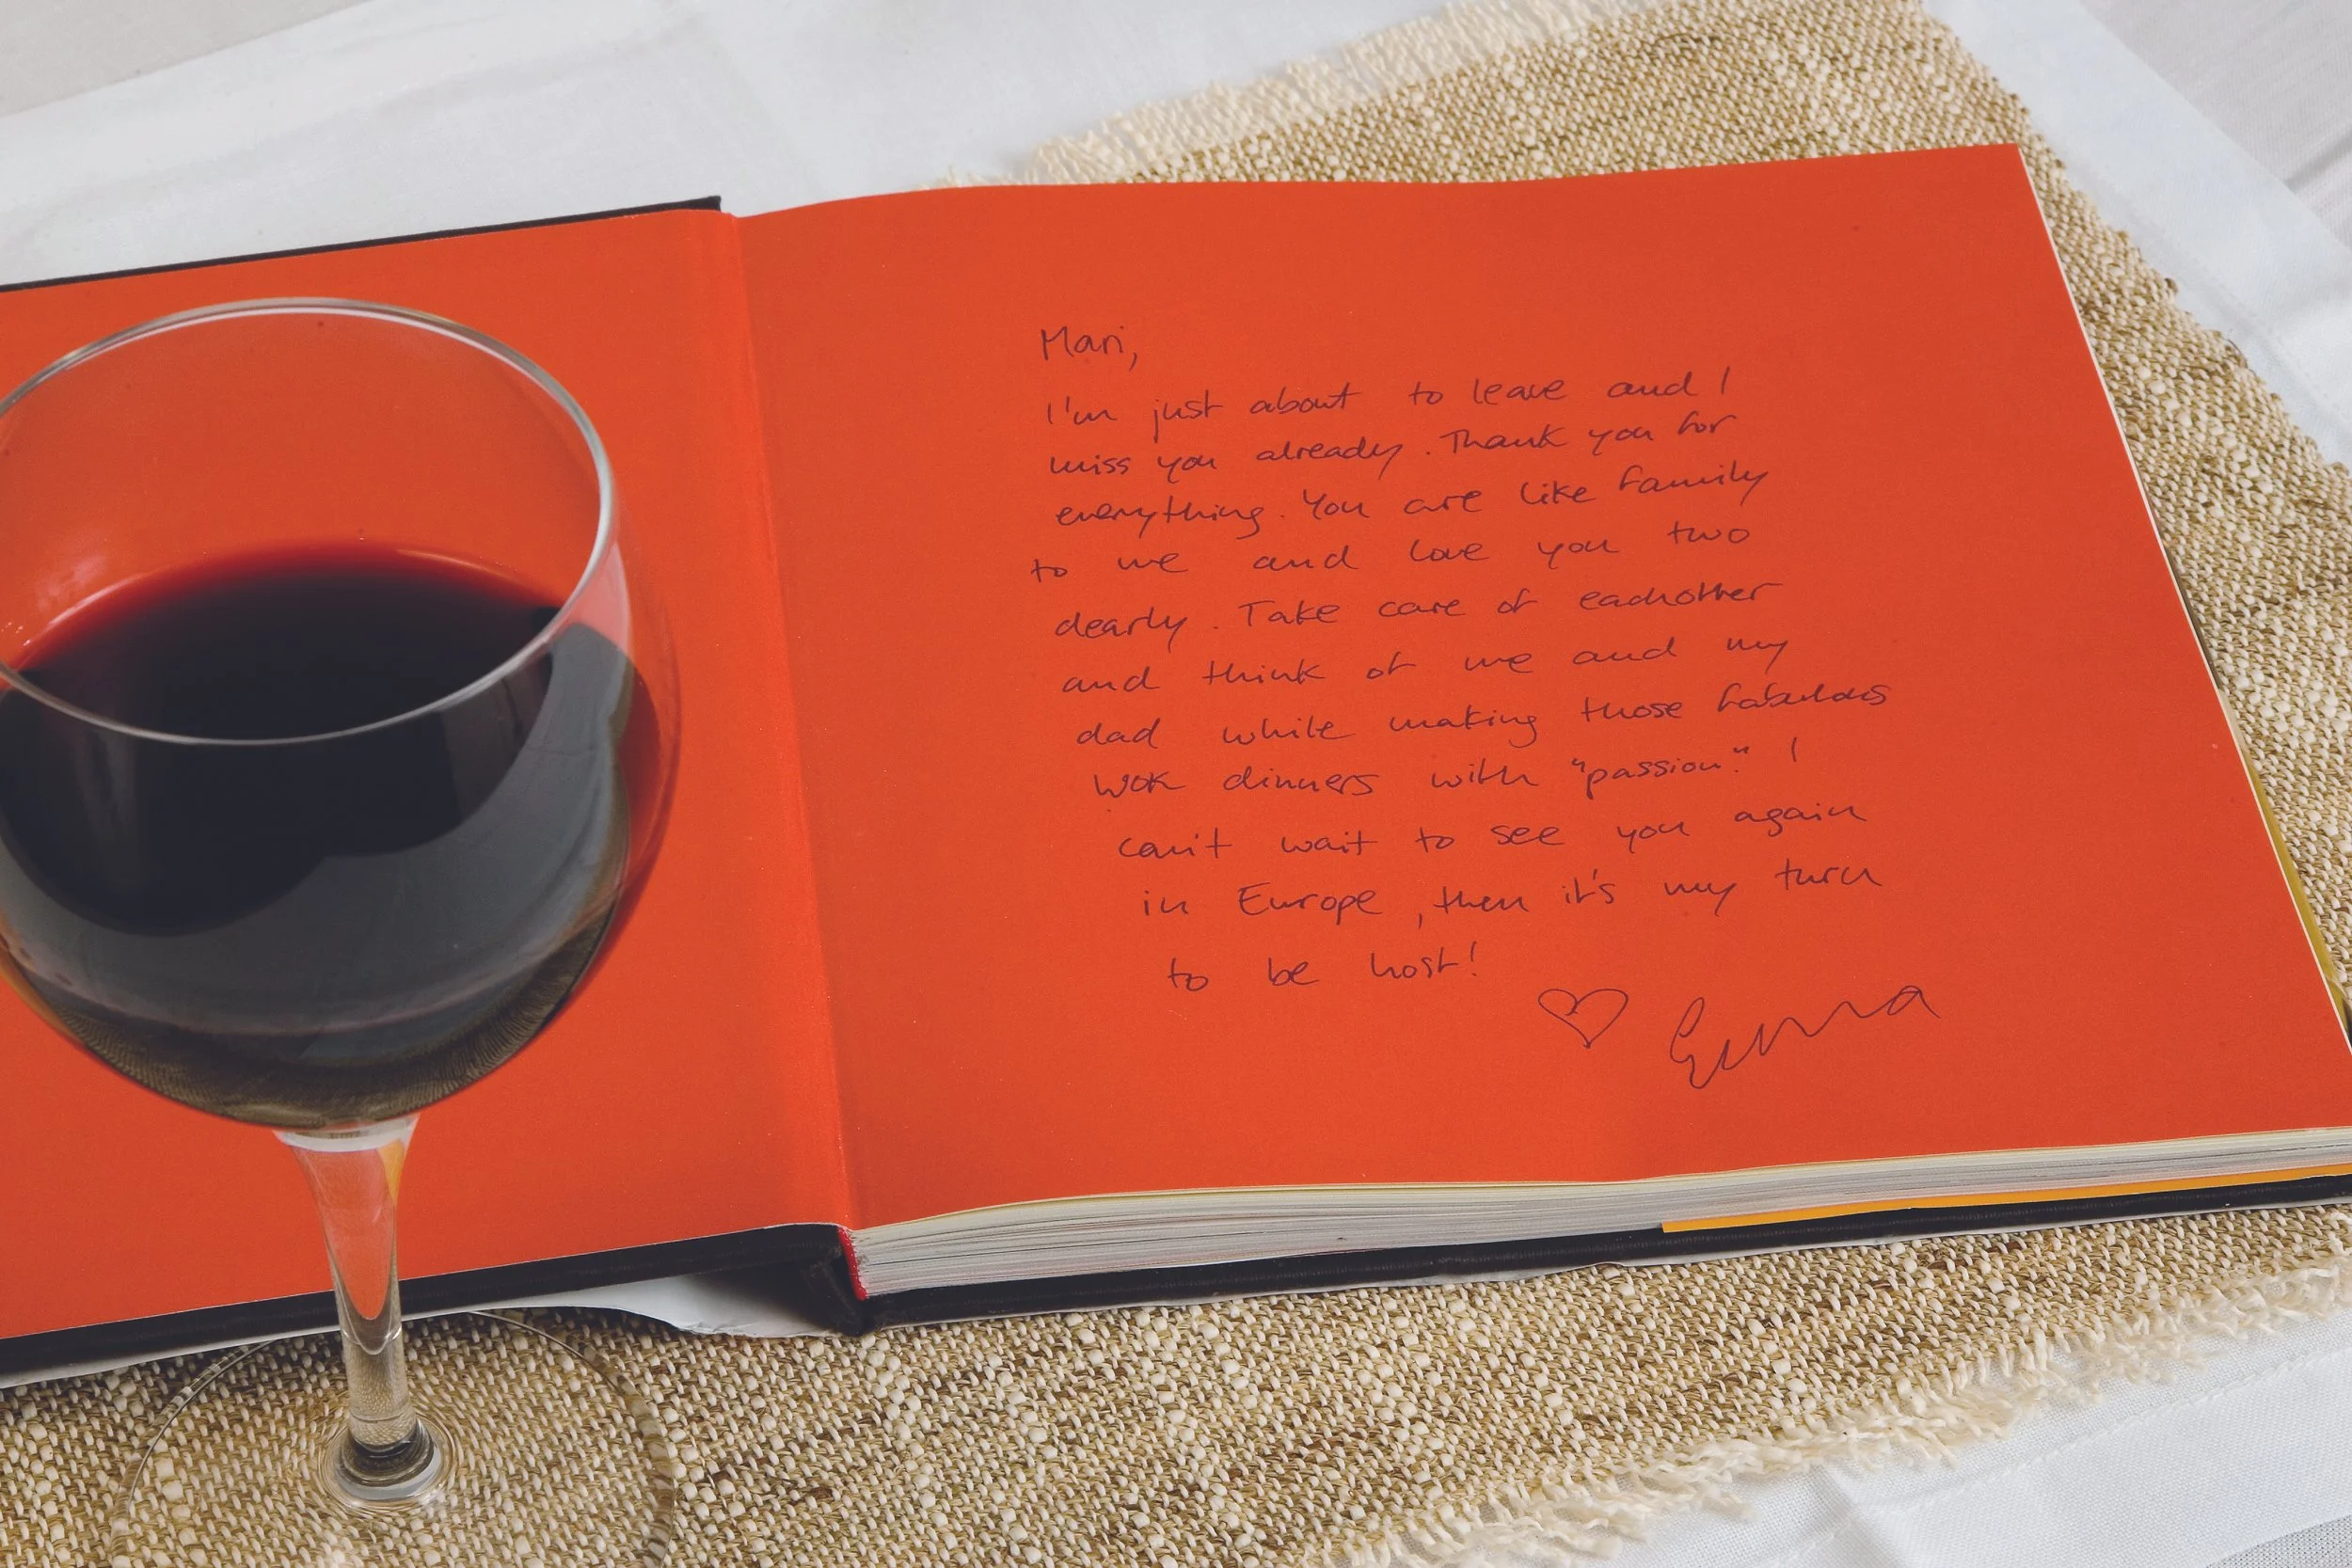 Mari,
I'm just about to leave and I
miss you already. Thank you for
everything. You are like family
to me and love you two
dearly. Take care of eachother
and think of me and my
dad while making those fabulous
wok dinners with "passion." I
can't wait to see you again
in Europe, then it's my turn
to be host!
♡ Emma